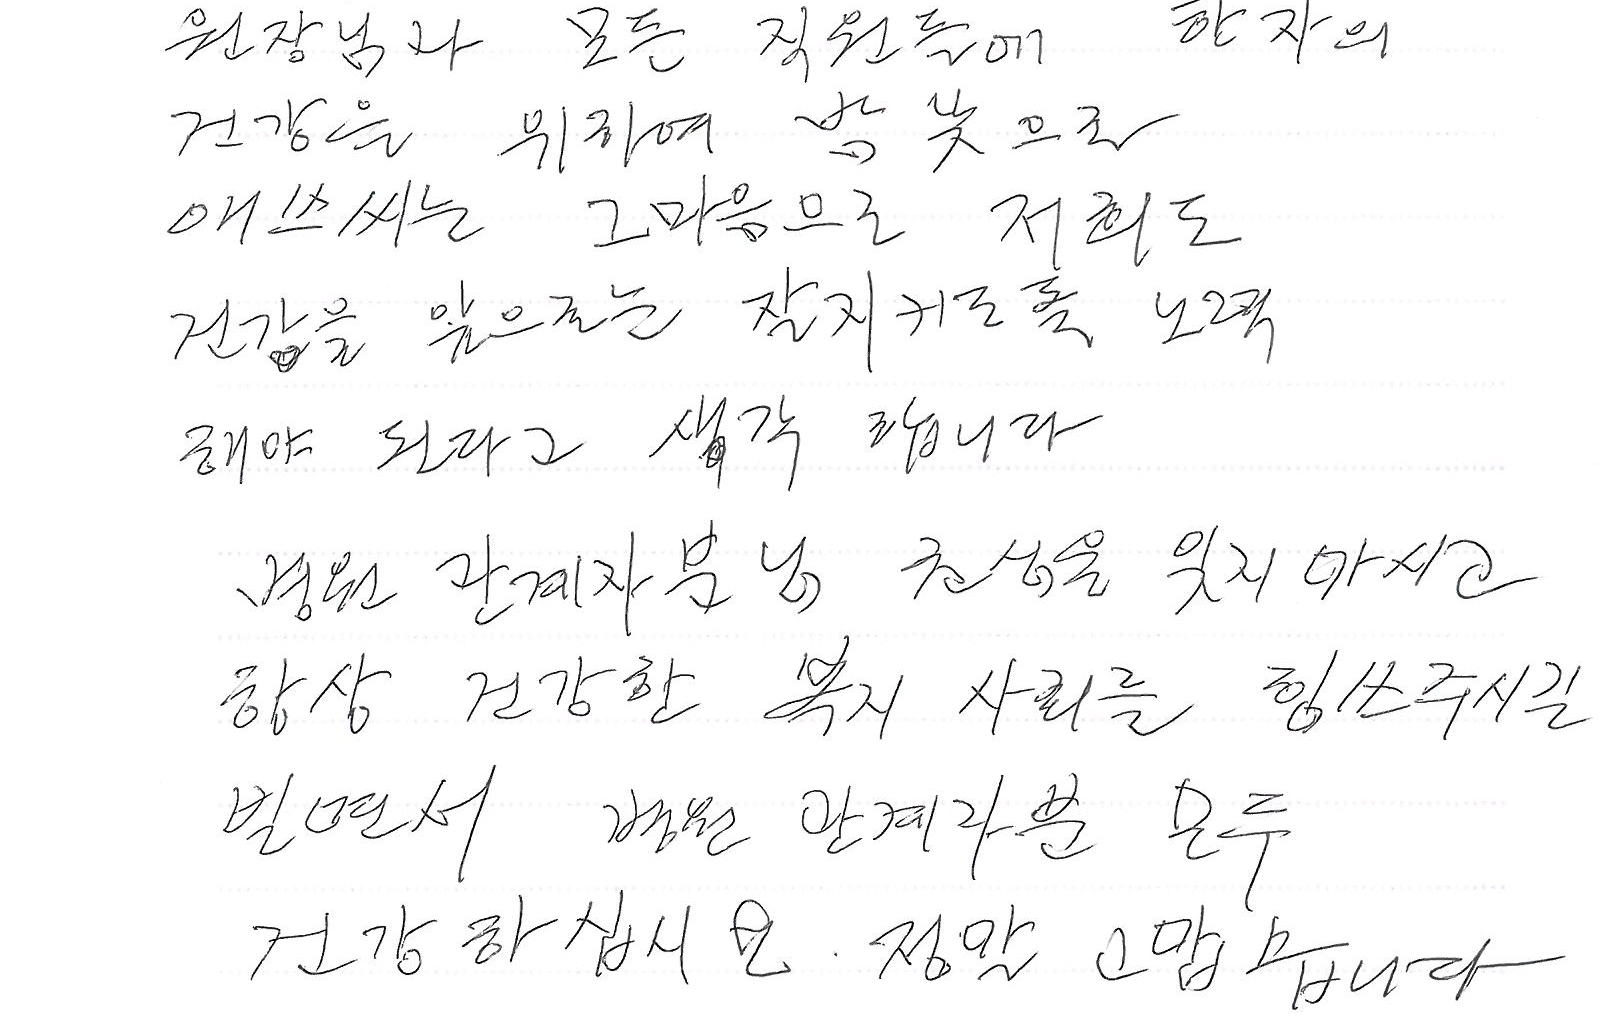 원장님과 모든 직원들에 환자의
건강은 위하여 밤낮으로
애쓰씨는 그마음으로 저희도
건강을 앞으로는 잘지키도록 노력
해야 된다고 생각 합니다
병원 관계자분님 초심을 잊지마시고
항상 건강한 복지 사회를 힘쓰주시길
빌면서 병원 관계자분 모두
건강하십시요. 정말 고맙습니다